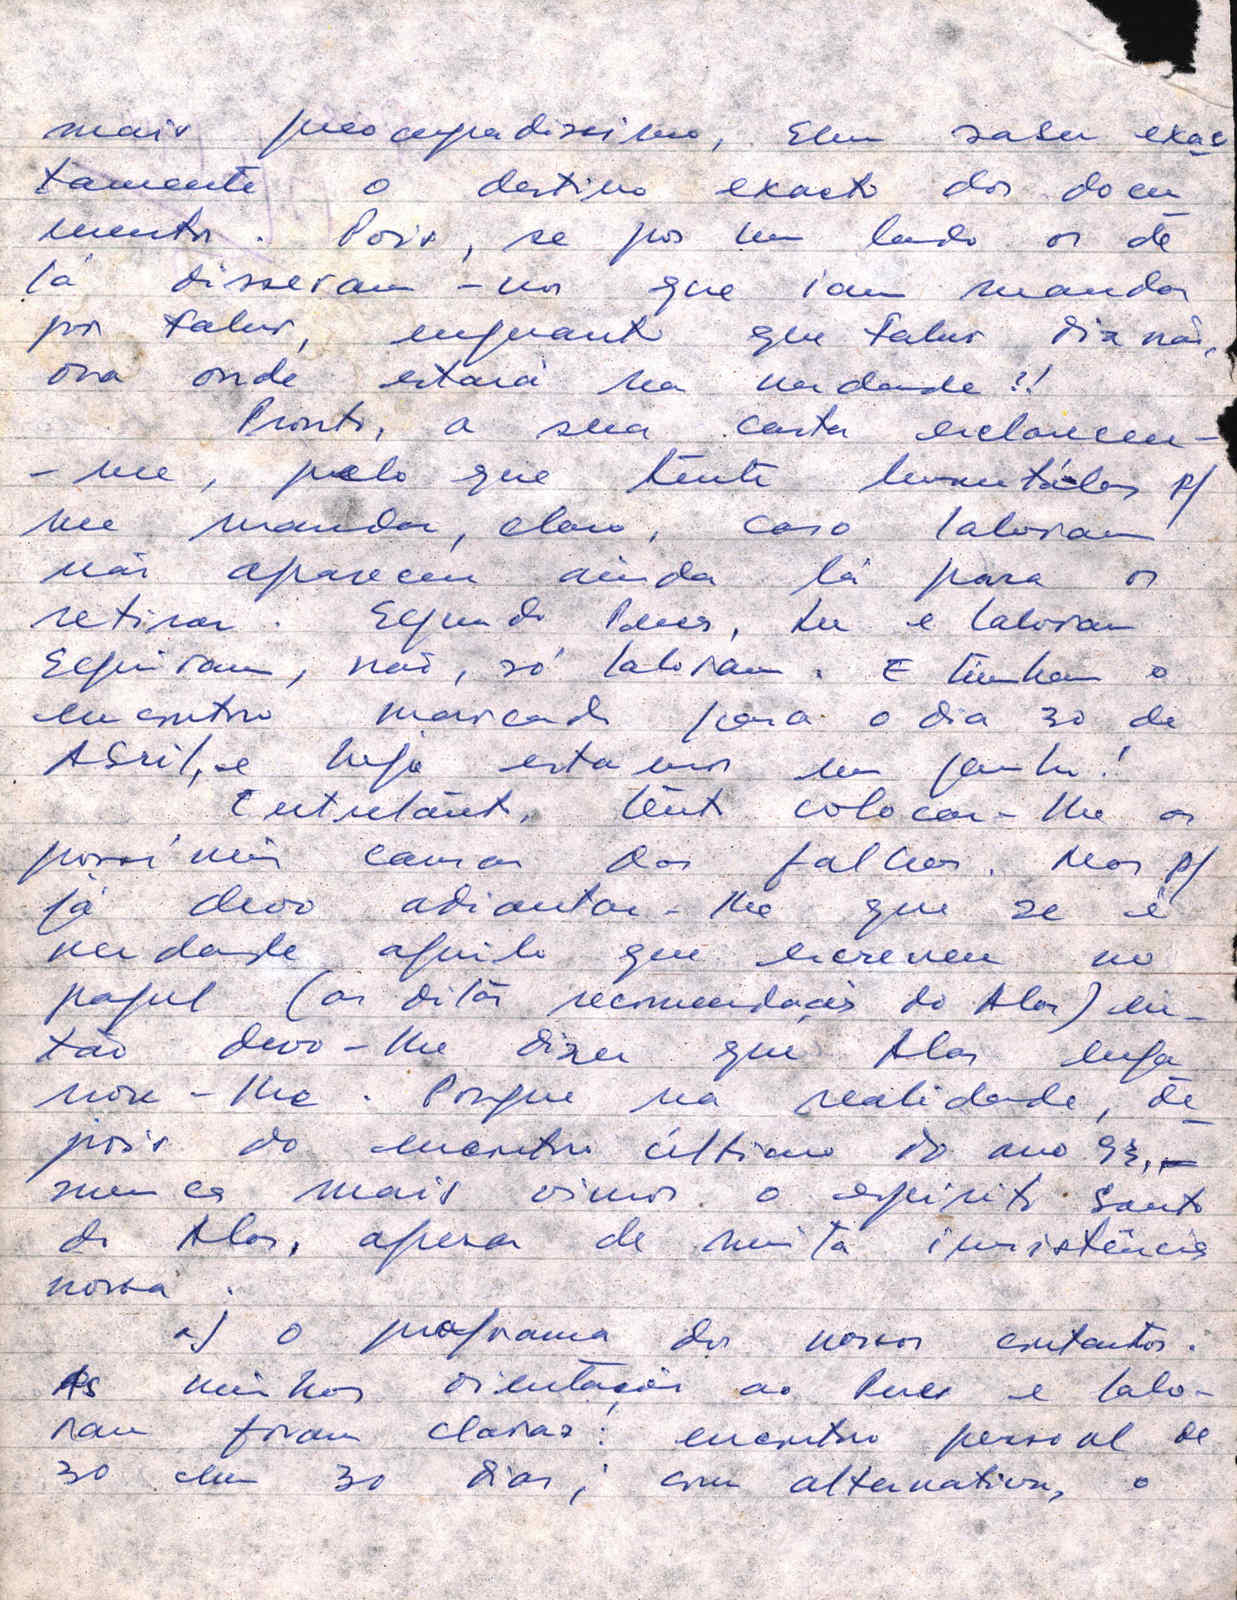 mais preocupadissimo, sem saber exac
tamente o destino exacto dos docu
mentos. Pois, se por um lado os de
lá disseram-nos que iam mandar
por Falur, enquanto que Falur diz não,
ora onde estará na verdade?!
Pronto, a sua carta esclareceu-
-me, pelo que tente levantá-los p/
me mandar, claro, caso Saloram
não apareceu ainda lá para os
retirar. Segundo Paces, Lu e Saloram
Seguiram, não, só Saloram. E tinham o
encontro marcado para o dia 30 de
Abril, e hoje estamos em Junho!
Entretanto, tento colocar-lhe as
possiveis causas das falhas. Mas p/
já devo adiantar-lhe que se é
verdade aquilo que escreveu no
papel (as ditas recomendações do Alas) en-
tão devo-lhe dizer que Alas enga
nou-lhe. Porque na realidade, de
pois do encontro último do ano 93,
nunca mais vimos o espírito Santo
do Alas, apesar de muita insistência
nossa.
a) O programa dos nossos contactos.
As minhas orientações ao Paces e Salo-
ram foram claras: encontro pessoal de
30 em 30 dias; com alternativas, o